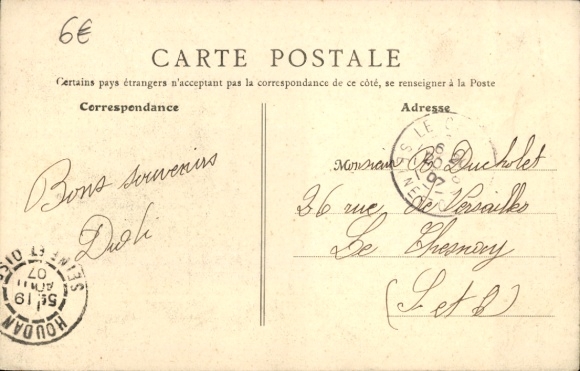 6€
CARTE POSTALE
Certains pays étrangers n'acceptant pas la correspondance de ce côté, se renseigner à la Poste
Correspondance
Adresse
Bons souvenirs
Monsieur Ducholet
26 rue de Versailles
Le Chesnay
(S et O)
HOUDAN
SEINE ET OISE
5E 19
AOUT
07
LE